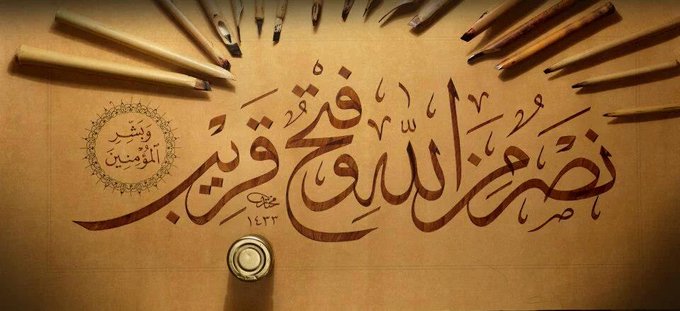 نَصْرٌ مِّنَ اللَّهِ وَفَتْحٌ قَرِيبٌ
وَبَشِّرِ
الْمُؤْمِنِينَ
١٤٣٣